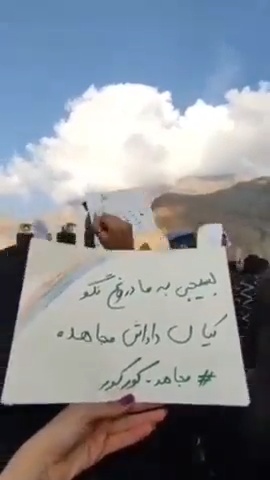 بسیجی به ما دروغ نگو
کیان داداش مجاهده
# مجاهد - کورکور